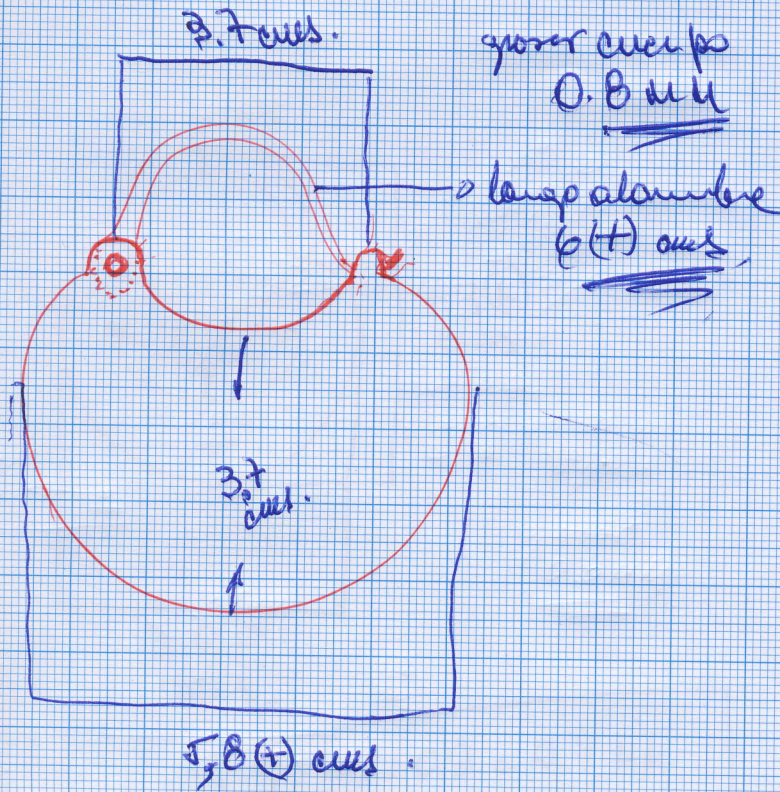 3.7 cms.
grosor cuerpo
0.8 mm
largo alambre
6(+) cms
3,7
cms.
5,8(+) cms.